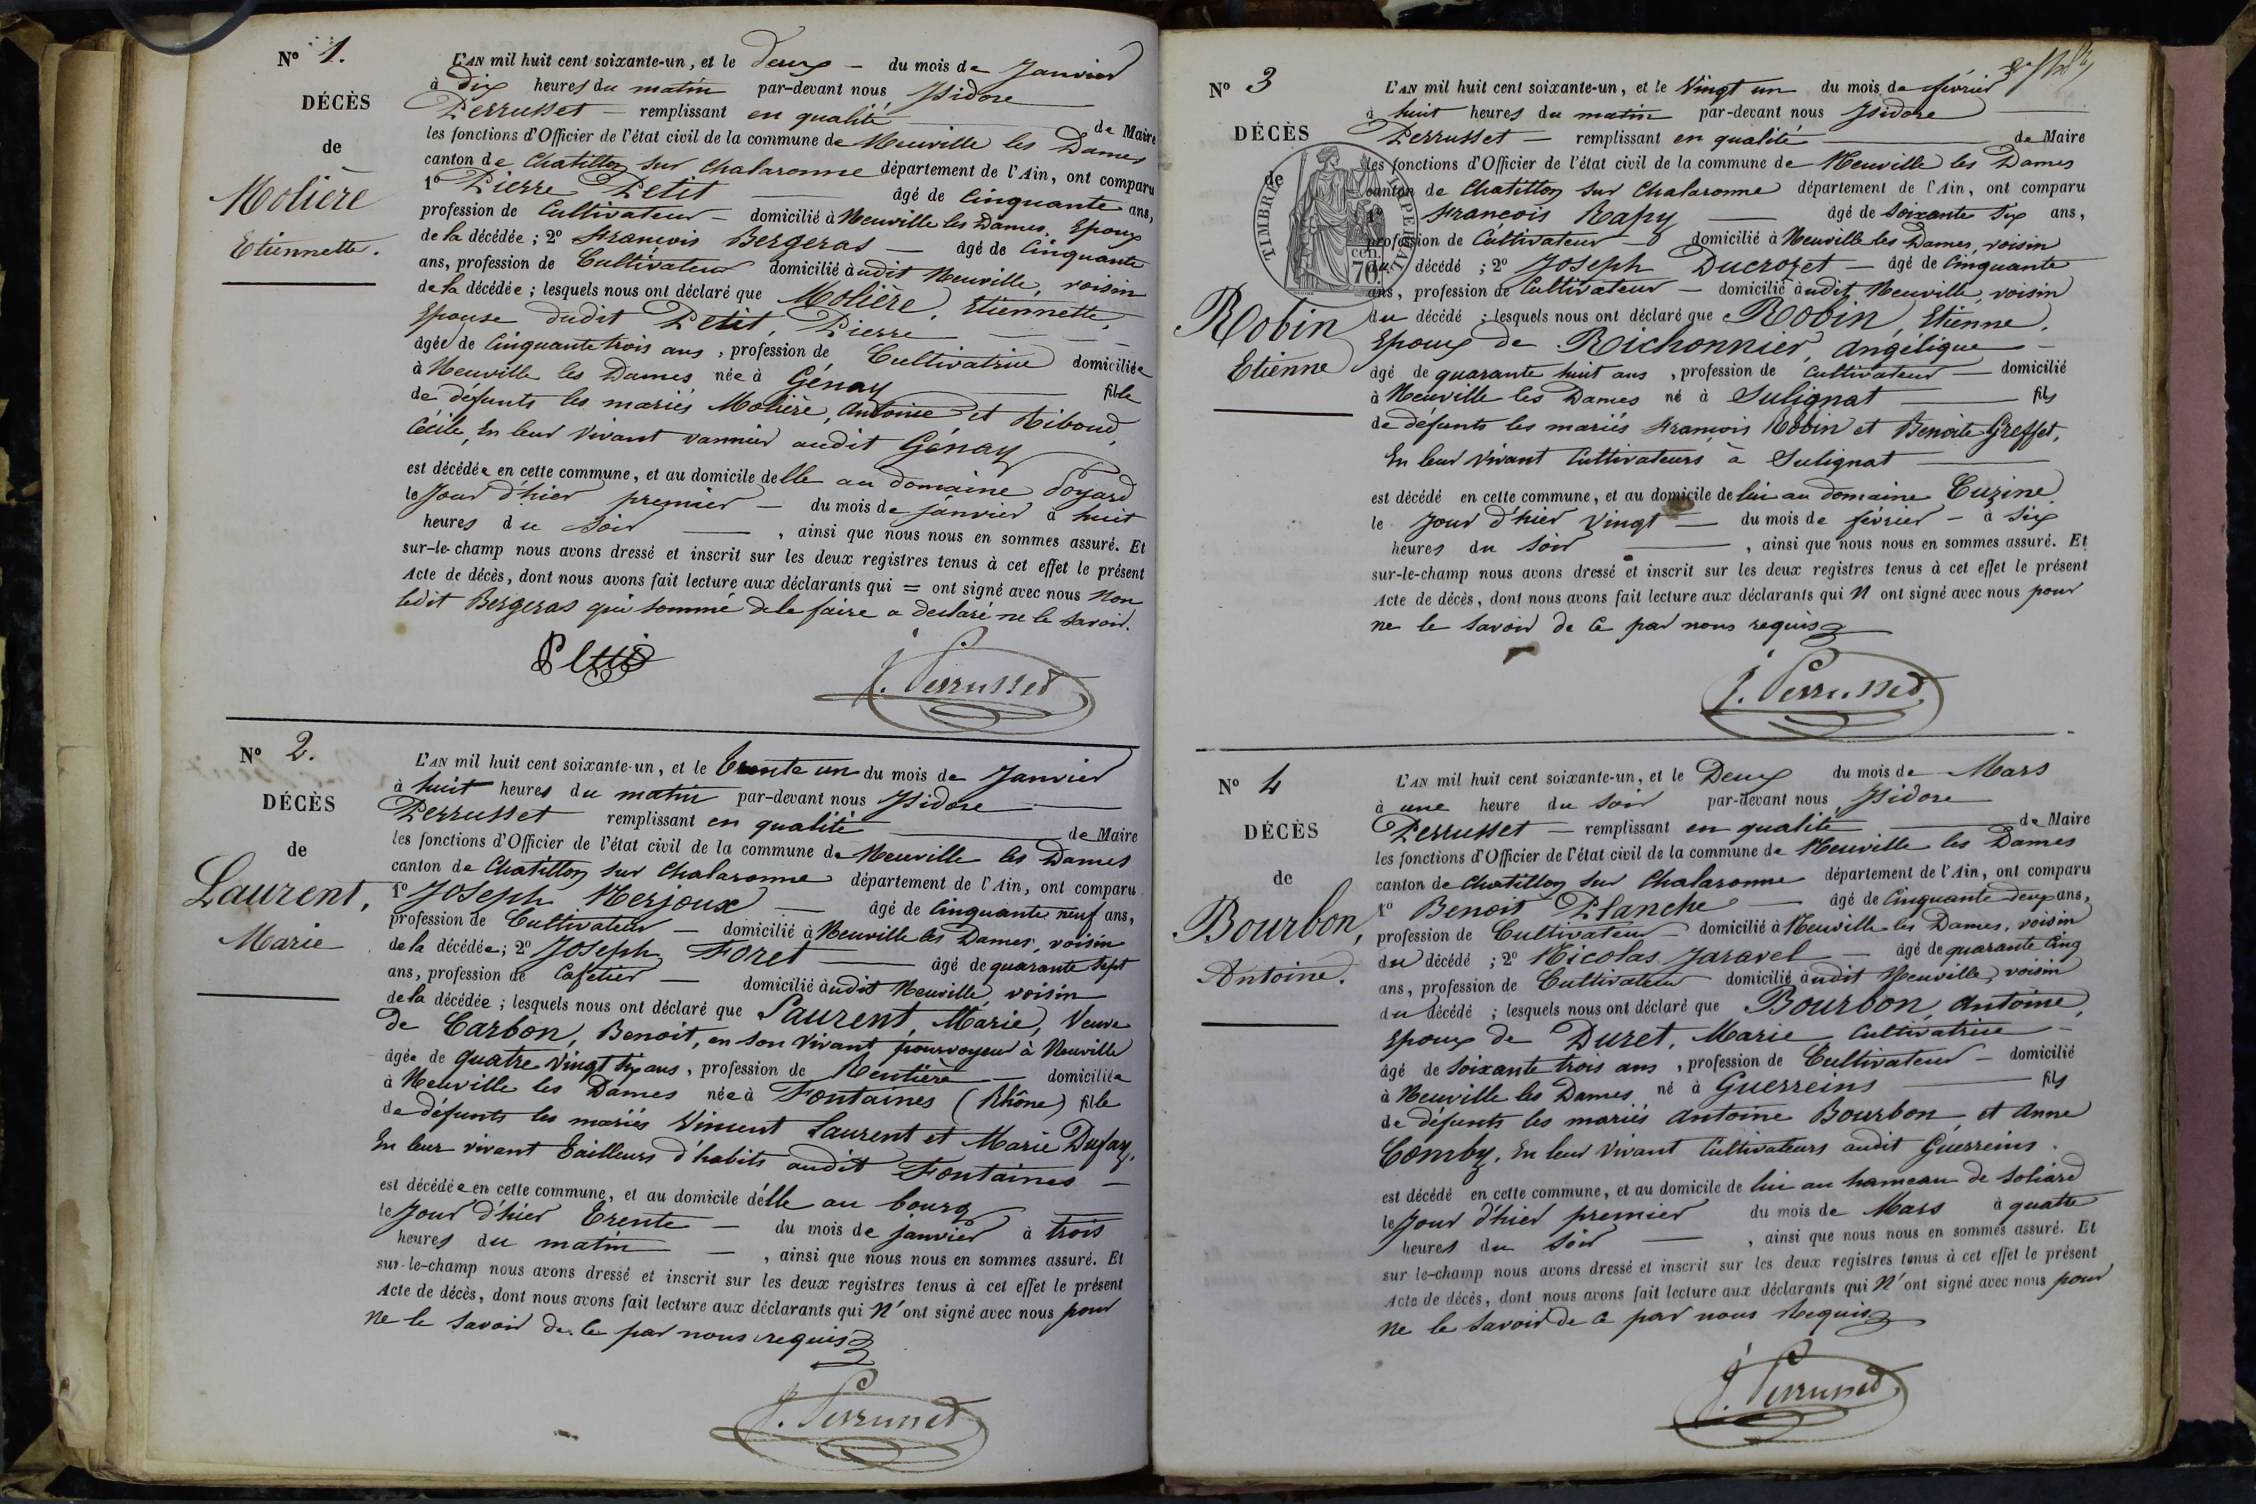 N° 1.
DÉCÈS
de
Molière
Etiennette.
L'AN mil huit cent soixante-un, et le deux — du mois de Janvier
à dix heures du matin par-devant nous Isidore
Perrusset — remplissant en qualité de Maire
les fonctions d'Officier de l'état civil de la commune de Neuville les Dames
canton de Chatillon sur Chalaronne département de l'Ain, ont comparu
1° Pierre Petit âgé de Cinquante ans,
profession de Cultivateur — domicilié à Neuville les Dames, Epoux
de la décédée ; 2° François Bergeras — âgé de Cinquante
ans, profession de Cultivateur domicilié à udit Neuville, voisin
de la décédée ; lesquels nous ont déclaré que Molière, Etiennette,
Epouse dudit Petit, Pierre
âgée de Cinquante trois ans, profession de Cultivatrice domiciliée
à Neuville les Dames née à Génay fille
de défunts les mariés Molière, Antoine et Riboud,
Cécile, En leur vivant vannier audit Génay
est décédée en cette commune, et au domicile delle au domaine Poyard
le Jour d'hier premier — du mois de janvier à huit
heures du soir —, ainsi que nous nous en sommes assuré. Et
sur-le-champ nous avons dressé et inscrit sur les deux registres tenus à cet effet le présent
Acte de décès, dont nous avons fait lecture aux déclarants qui = ont signé avec nous Non
ledit Bergeras qui sommé de le faire a declaré ne le savoir.
Petit
J. Perrusset
N° 2.
DÉCÈS
de
Laurent,
Marie
L'AN mil huit cent soixante-un, et le Trente un du mois de Janvier
à huit heures du matin par-devant nous Isidore
Perrusset remplissant en qualité de Maire
les fonctions d'Officier de l'état civil de la commune de Neuville les Dames
canton de Chatillon sur Chalaronne département de l'Ain, ont comparu
1° Joseph Merjoux — âgé de Cinquante neuf ans,
profession de Cultivateur — domicilié à Neuville les Dames, voisin
de la décédée ; 2° Joseph Foret — âgé de quarante sept
ans, profession de Cafetier — domicilié à udit Neuville, voisin
de la décédée ; lesquels nous ont déclaré que Laurent, Marie, Veuve
de Carbon, Benoit, en son vivant pourvoyeur à Neuville
âgée de quatre vingt six ans, profession de Rentière — domiciliée
à Neuville les Dames née à Fontaines (Rhône) fille
de défunts les mariés Vincent Laurent et Marie Dufay,
En leur vivant Tailleurs d'habits audit Fontaines —
est décédée en cette commune, et au domicile d'elle au bourg
le Jour d'hier Trente — du mois de janvier à trois
heures du matin —, ainsi que nous nous en sommes assuré. Et
sur-le-champ nous avons dressé et inscrit sur les deux registres tenus à cet effet le présent
Acte de décès, dont nous avons fait lecture aux déclarants qui N'ont signé avec nous pour
Ne le savoir de ce par nous requis
J. Perrusset
N° 3
DÉCÈS
de
TIMBRE IMPÉRIAL
70 cen.
Robin
Etienne
L'AN mil huit cent soixante-un, et le Vingt un du mois de février
à huit heures du matin par-devant nous Isidore
Perrusset — remplissant en qualité de Maire
les fonctions d'Officier de l'état civil de la commune de Neuville les Dames
canton de Chatillon sur Chalaronne département de l'Ain, ont comparu
1° François Rapy — âgé de Soixante Six ans,
profession de Cultivateur — domicilié à Neuville les Dames, voisin
du décédé ; 2° Joseph Ducrozet — âgé de Cinquante
ans, profession de Cultivateur — domicilié à udit Neuville, voisin
du décédé ; lesquels nous ont déclaré que Robin, Etienne,
Epoux de Richonnier, Angélique —
âgé de quarante huit ans, profession de Cultivateur — domicilié
à Neuville les Dames né à Sulignat — fils
de défunts les mariés François Robin et Benoite Greffet,
En leur Vivant Cultivateurs à Sulignat
est décédé en cette commune, et au domicile de lui au domaine Cuzine
le Jour d'hier Vingt — du mois de février — à Six
heures du soir —, ainsi que nous nous en sommes assuré. Et
sur-le-champ nous avons dressé et inscrit sur les deux registres tenus à cet effet le présent
Acte de décès, dont nous avons fait lecture aux déclarants qui N ont signé avec nous pour
ne le savoir de ce par nous requis
J. Perrusset
N° 4
DÉCÈS
de
Bourbon,
Antoine.
L'AN mil huit cent soixante-un, et le Deux du mois de Mars
à une heure du soir par-devant nous Isidore
Perrusset — remplissant en qualité de Maire
les fonctions d'Officier de l'état civil de la commune de Neuville les Dames
canton de Chatillon sur Chalaronne département de l'Ain, ont comparu
1° Benoit Planche — âgé de Cinquante deux ans,
profession de Cultivateur — domicilié à Neuville les Dames, voisin
du décédé ; 2° Nicolas Jaravel — âgé de quarante Cinq
ans, profession de Cultivateur domicilié à udit Neuville, voisin
du décédé ; lesquels nous ont déclaré que Bourbon, Antoine,
Epoux de Duret, Marie Cultivatrice —
âgé de Soixante trois ans, profession de Cultivateur — domicilié
à Neuville les Dames, né à Guerreins — fils
de défunts les mariés Antoine Bourbon et Anne
Comby, En leur Vivant Cultivateurs audit Guerreins.
est décédé en cette commune, et au domicile de lui au hameau de Soliard
le Jour d'hier premier du mois de Mars à quatre
heures du soir —, ainsi que nous nous en sommes assuré. Et
sur le-champ nous avons dressé et inscrit sur les deux registres tenus à cet effet le présent
Acte de décès, dont nous avons fait lecture aux déclarants qui N'ont signé avec nous pour
Ne le savoir de ce par nous Requis
J. Perrusset